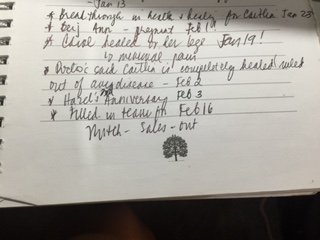 Jan 13
* Breakthrough in health & healing for Caitlin Jan 23
* Benj Ann - pregnant Feb 19
* Carol healed of her leg Jan 19!
↳ minimal pain
* Doctors said Caitlin is completely healed ruled
out of any disease - Feb 2
* Hazel's Anniversary Feb 3
* Filled in team for Feb 16
Mitch - Sales - out